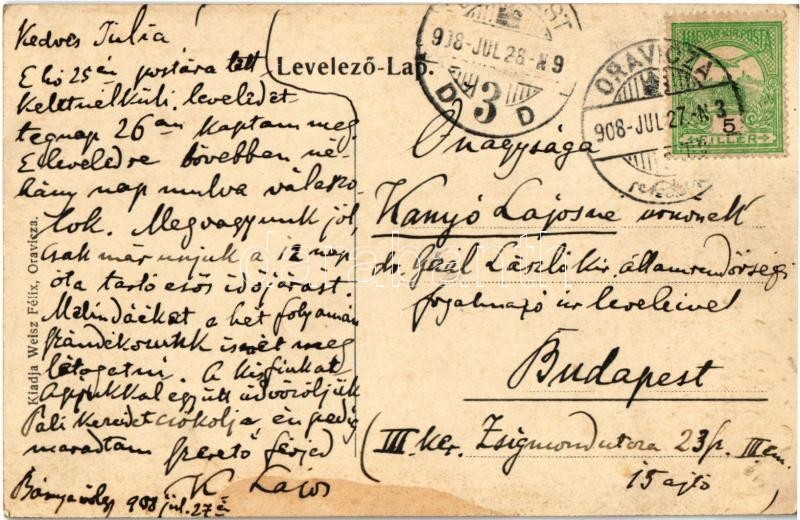 Kedves Julia
E hó 25én postára tett
keletnélküli leveledet
tegnap 26 án kaptam meg.
E leveledre bővebben né-
hány nap mulva válaszo-
lok. Megvagyunk jól,
csak már unjuk a 12 nap
óta tartó esős időjárást.
a hét folyamán
szándékozunk ismét meg
látogatni. A kisfiunkat
együtt üdvözöljük
Pali kezedet csókolja, én pedig
maradtam szerető férjed
K Lajos
908 júl. 27 én
Levelező-Lap.
Kiadja Weisz Félix, Oravicza.
908-JUL.28.-N 9
3
D D
ORAVICZA
908-JUL.27.-N 3
MAGYAR KIR. POSTA
5
FILLÉR
Őnagysága
Kanyó Lajosné úrnőnek
dr. Gaál László kir. államrendőrségi
fogalmazó úr leveleivel
Budapest
III. ker. Zsigmond utcza 23 sz. III em.
15 ajtó
darabanth